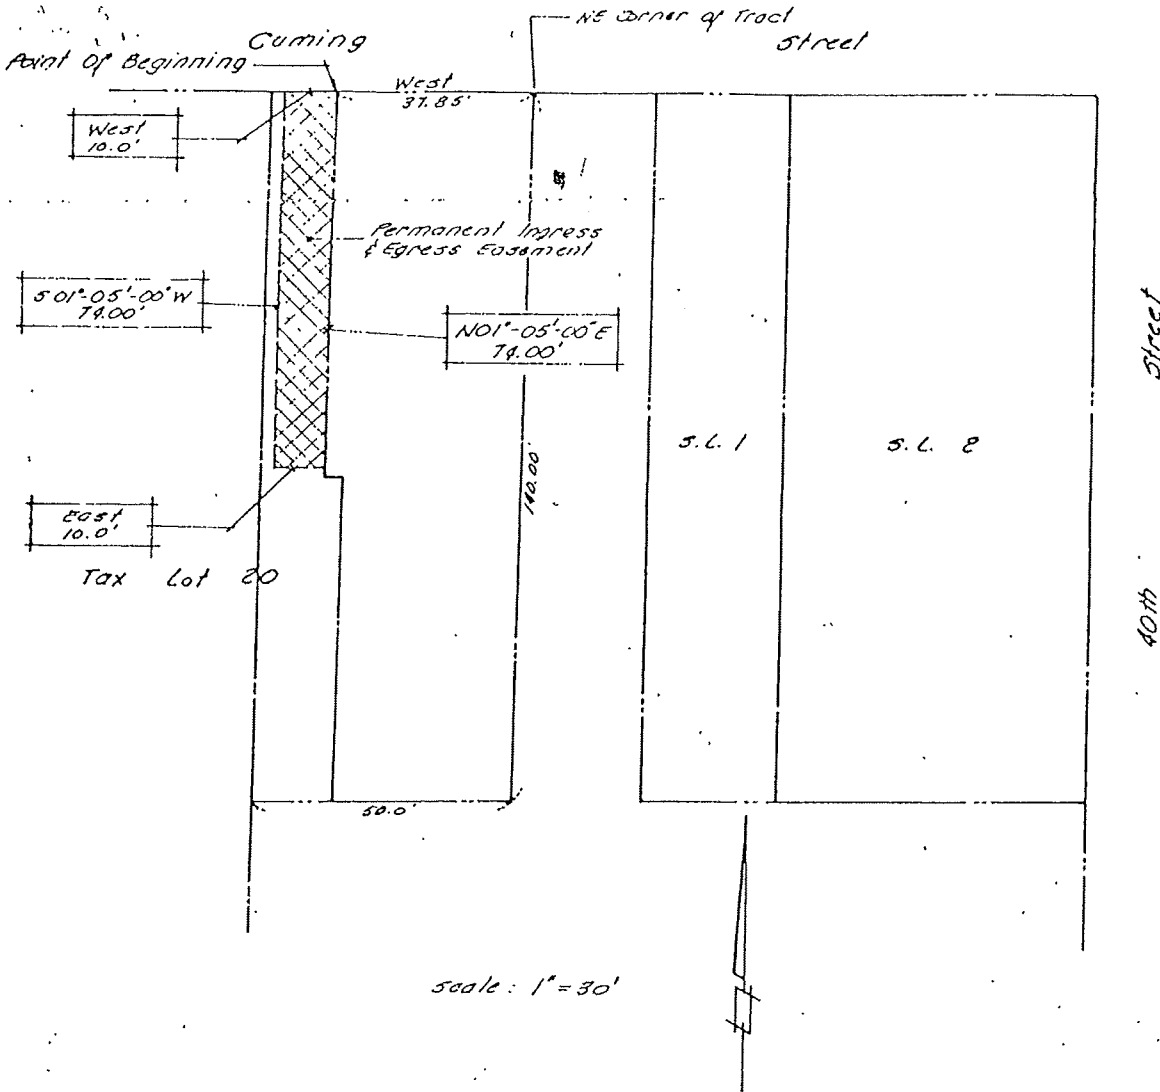 NE Corner of Tract
Cuming Street
Point Of Beginning
West
37.85'
West
10.0'
Permanent Ingress
& Egress Easement
S01°-05'-00"W
74.00'
N01°-05'-00"E
74.00'
Street
S.L. 1
S.L. 2
140.00'
East
10.0'
Tax Lot 20
40th
50.0'
Scale: 1"=30'